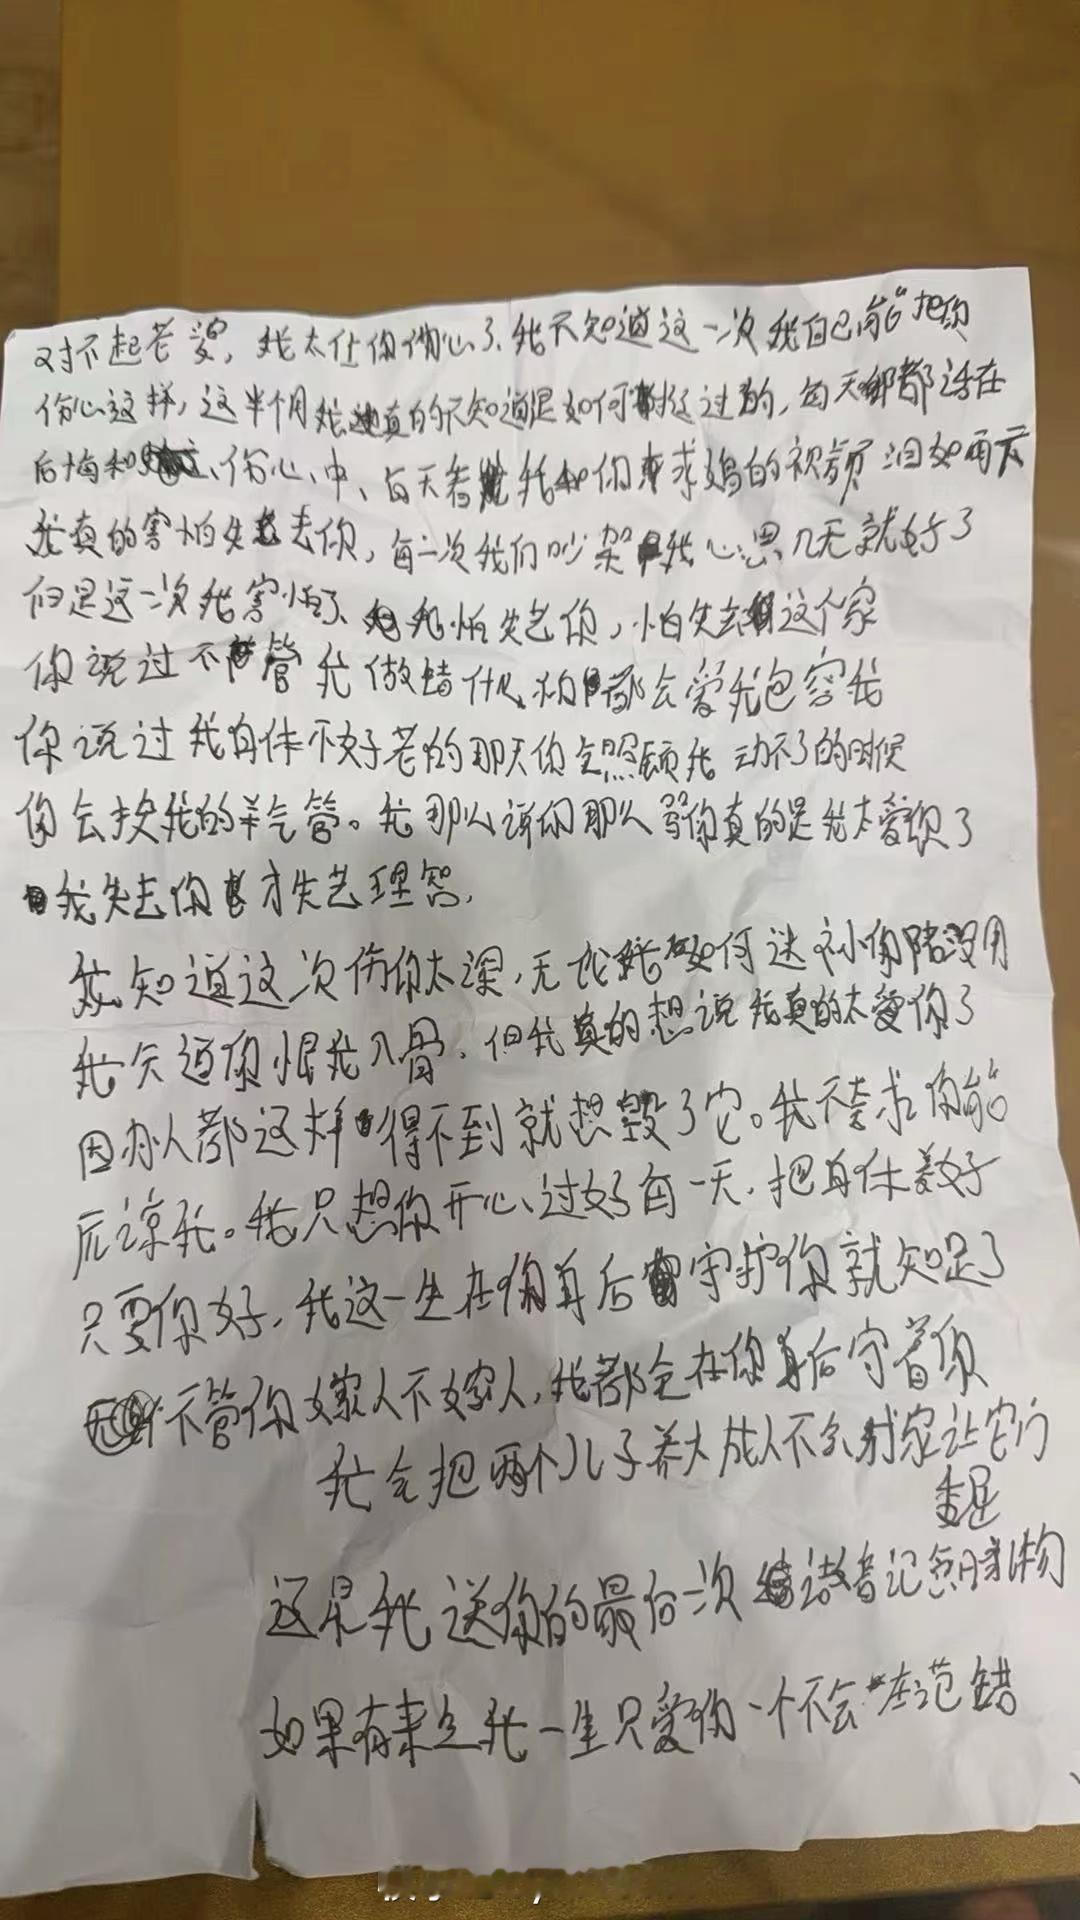 对不起老婆，我太让你伤心了，我不知道这一次我自己能把你
伤心这样，这半个月我真的不知道是如何挺过的，每天都活在
后悔和伤心中、每天看我和你求婚的视频泪如雨下
我真的害怕失去你，每一次我们吵架我心思几天就好了
但是这一次我害怕了、我怕失去你，怕失去这个家
你说过不管我做错什么都会爱我包容我
你说过我身体不好老的那天你会照顾我动不了的时候
你会换我的羊气管。我那么诉你那么骂你真的是我太爱你了
我失去你才失去理智，
我知道这次伤你太深，无论我如何送你陪没用
我知道你恨我入骨，但我真的想说我真的太爱你了
因为人都这样得不到就想毁了它。我不奢求你能
原谅我。我只想你开心、过好每一天，把身体养好
只要你好，我这一生在你身后守护你就知足了
不管你嫁人不嫁人，我都会在你身后守着你
我会把两个儿子养大成人不会让它们
委屈
这是我送你的最后一次记念日礼物
如果有来生我一生只爱你一个不会在范错